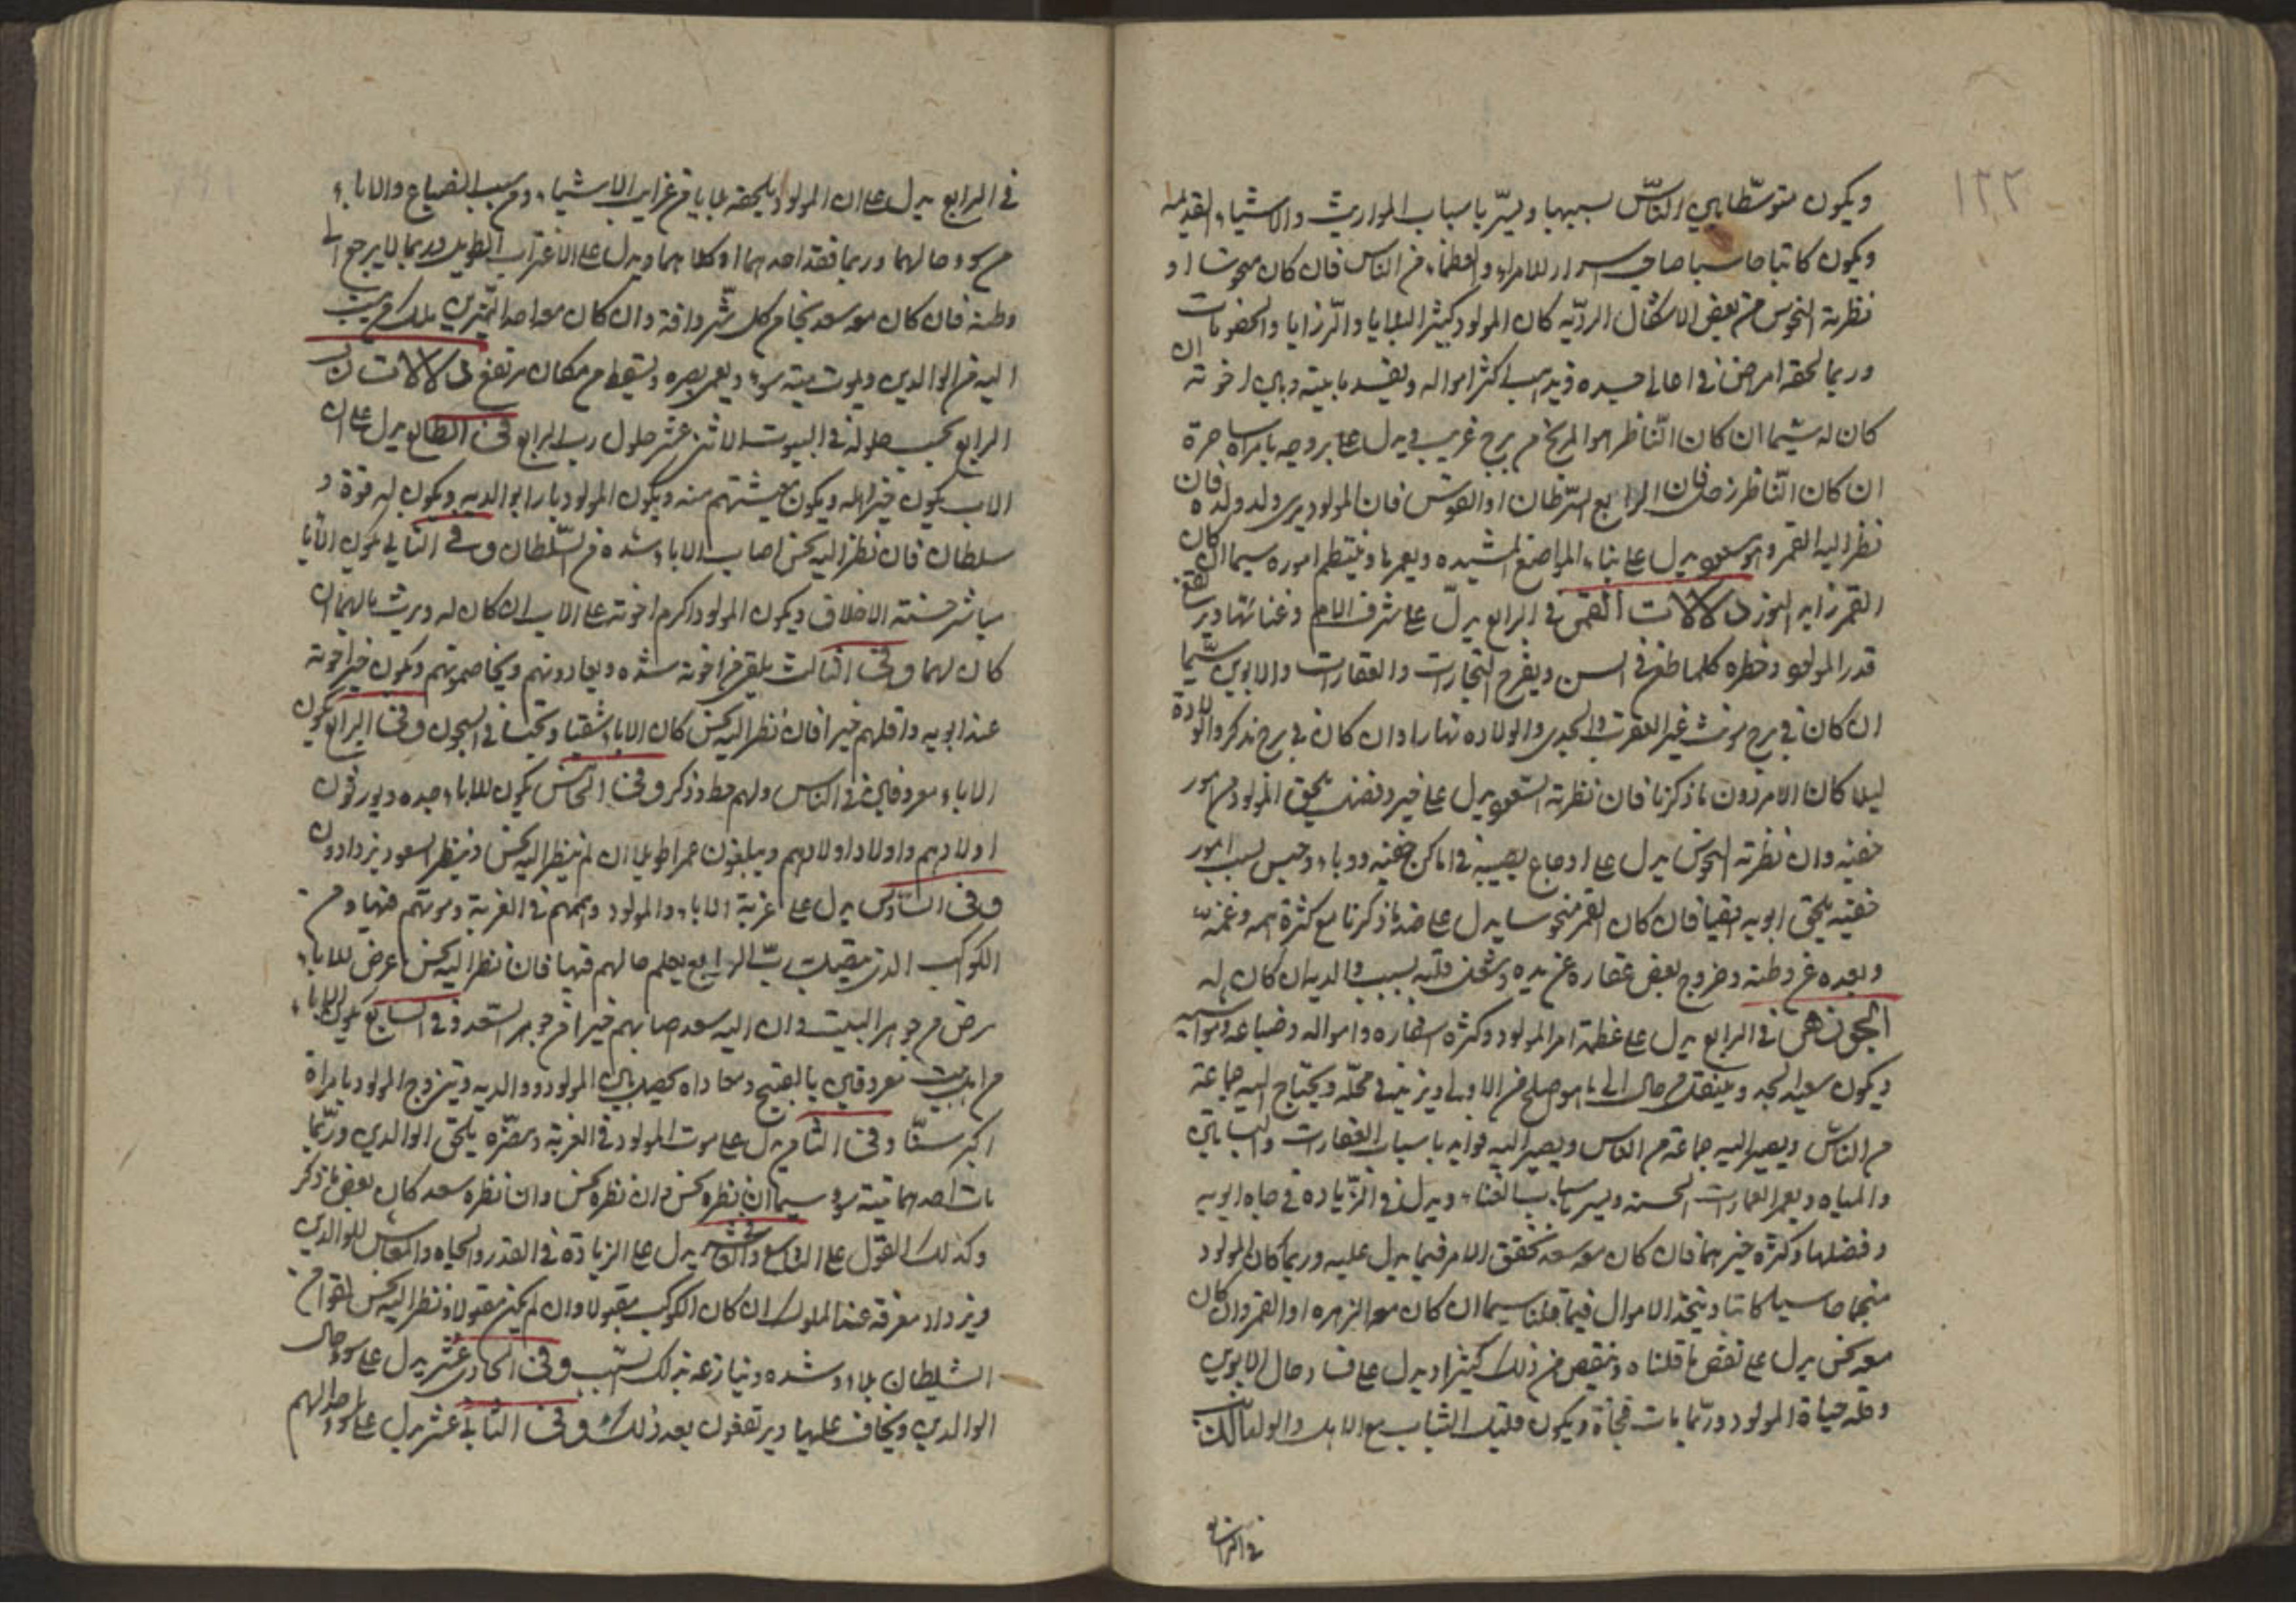 ١٢٢
ويكون متوسطا بين الناس بسببها ويسر باسباب المواريث والاشياء القديمة
ويكون كاتبا حاسبا صاحب اسرار للامراء والعظماء من الناس فان كان منحوسا او
نظرته النحوس من بعض الاشكال الرديّه كان المولود كثير البلايا والرزايا والخصومات
وربما لحقه امراض في اعالي جسده ويذهب اكثر امواله ويفسد ما بينه وبين اخوته ان
كان له سيما ان كان النّاظر هو المريخ من برج غريب ويدل على تزوجه بامراة حرة
ان كان النّاظر زحل فان الرابع السّرطان او القوس فان المولود يرى ولد ولده فان
نظر اليه القمر وهو مسعود يدل على بناء المواضع المشيده ويعمرها وينتظم اموره سيما ان كان
القمر زايد النور دلالات الشمس في الرابع يدلّ على شرف الام وغنائها ويرتفع
قدر المولود وخطره كلما طعن في السن ويفرح التجارات والعقارات والابوين سيّما
ان كان في برج مونث غير العقرب والجدي والولاده نهارا وان كان في برج مذكر والولادة
ليلا كان الامر دون ما ذكرنا فان نظرته السّعود يدل على خير وفضل يلحق المولود من امور
خفيه وان نظرته النحوس يدل على اوجاع يصيبه في اماكن خفيه ووباء وحبس بسبب امور
خفيّه يلحق ابويه ايضا فان كان القمر منحوسا يدل على ضد ما ذكرنا مع كثرة همه وغمّه
وبعده عن وطنه وخروج بعض عقاره عن يده وشغل قلبه بسبب والديه ان كان له
الجوزهر في الرابع يدل على عظمة امر المولود وكثرة اسفاره وامواله وضياعه ومواشيه
ويكون سعيد الجد وينتقل من حال الى ما هو اصلح من الاولى ويزيد في محلّه ويحتاج اليه جماعة
من النّاس ويصير اليه جماعة من الناس ويصير اليه فوايد باسباب العقارات والبساتين
والمياه ويعمر العمارات الحسنه ويسر باسباب الغناء ويدل في الزّياده في جاه ابويه
وفضلهما وكثرة خيرهما فان كان معه سعد تحقق الامر فيما يدل عليه وربما كان المولود
منجما حاسبا كاتبا ويتخذ الاموال فيما قلنا سيما ان كان معه الزهره او القمر وان كان
معه نحس يدل على نقض ما قلناه وينقص من ذلك كثيرا ويدل على فساد حال الابوين
وقلة حياة المولود وربّما مات فجأة ويكون قليل الثبات مع الاهل والولد الذنب
في الرابع
في الرابع يدل على ان المولود يلحقه بلايا من غرايب الاشياء ومن سبب الضياع والاباء
من سوء حالهما وربما فقد احدهما او كلاهما ويدل على الاغتراب الطويل وربما لا يرجع الى
وطنه فان كان معه سعد نجا من كل شّر وافة وان كان معه احد النّيرين هلك من ينسب
اليه من الوالدين ويموت ميته سوء ويعمى بصره ويسقط من مكان مرتفع دلالات رب
الرابع بحسب حلوله في البيوت الاثني عشر حلول رب الرابع في الطالع يدل على ان
الاب يكون خير اهله ويكون معيشتهم منه ويكون المولود بارا بوالديه ويكون له قوة و
سلطان فان نظر اليه نحس اصاب الاباء شده من السّلطان وفي الثاني يكون الابا
مياشر حسنة الاخلاق ويكون المولود اكرم اخوته على الاب ان كان له ويرث مالهما ان
كان لهما وفي الثالث يلقى من اخوته شده ويعادونهم ويخاصمونهم ويكون خير اخوته
عند ابويه واقلهم خيرا فان نظر اليه نحس كان الاباء اشقياء وتحبسا في السجون وفي الرابع يكون
الاباء معروفين في الناس ولهم حظ وذكر وفي الخامس يكون للاباء جده ويورثون
اولادهم واولاد اولادهم ويبلغون عمرا طويلا ان لم ينظر اليه نحس وينظر السعود يزدادون
وفي السّادس يدل على غربة الاباء والمولود وهمهم في الغربة وموتهم فيها ومن
الكوكب الذي يتصل برب الرابع يعلم حالهم فيها فان نظر اليه نحس عرض للاباء
مرض من جوهر البيت وان اليه سعد اصابهم خيرا من جوهر السّعد وفي السابع يكون الاباء
من اهل بيت معروفين بالقبح ومعاداه يحصل بين المولود ووالديه ويتزوج المولود بامراة
اكبر سنّا وفي الثامن يدل على موت المولود في الغربة ومضرّه يلحق الوالدين وربّما
مات احدهما ميتة سوء سيما ان نظره نحس وان نظره سعد كان بعض ما ذكر
وكذلك القول على التاسع وفي العاشر يدل على الزيادة في القدر والجاه والمعاش للوالدين
ويزداد معرفة عند الملوك ان كان الكوكب مقبولا وان لم يكن مقبولا ونظر اليه نحس لقوا من
السّلطان بلاء وشده وينازعه بذلك السّبب وفي الحادي عشر يدل على سوء حال
الوالدين ويخاف عليهما ويرتفعون بعد ذلك وفي الثاني عشر يدل على سوء احوالهم